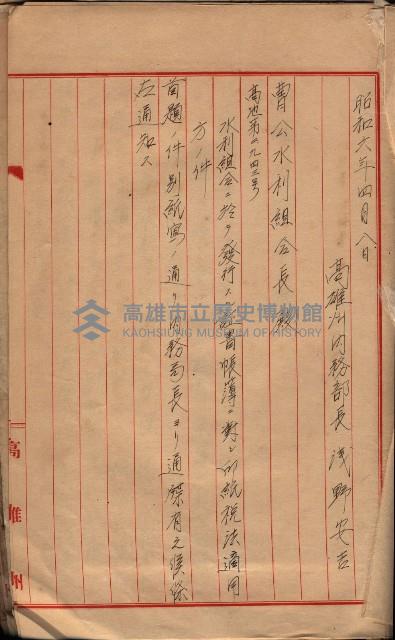 昭和六年四月八日
高雄州内務部長 浅野安吉
曹公水利組合長殿
高地第二九四三号
水利組合ニ於テ發行スル證書帳簿ニ對シ印紙税法適用
方ノ件
首題ノ件別紙寫ノ通リ内務局長ヨリ通牒有之候條
右通知ス
高雄州
高雄市立歷史博物館
KAOHSIUNG MUSEUM OF HISTORY